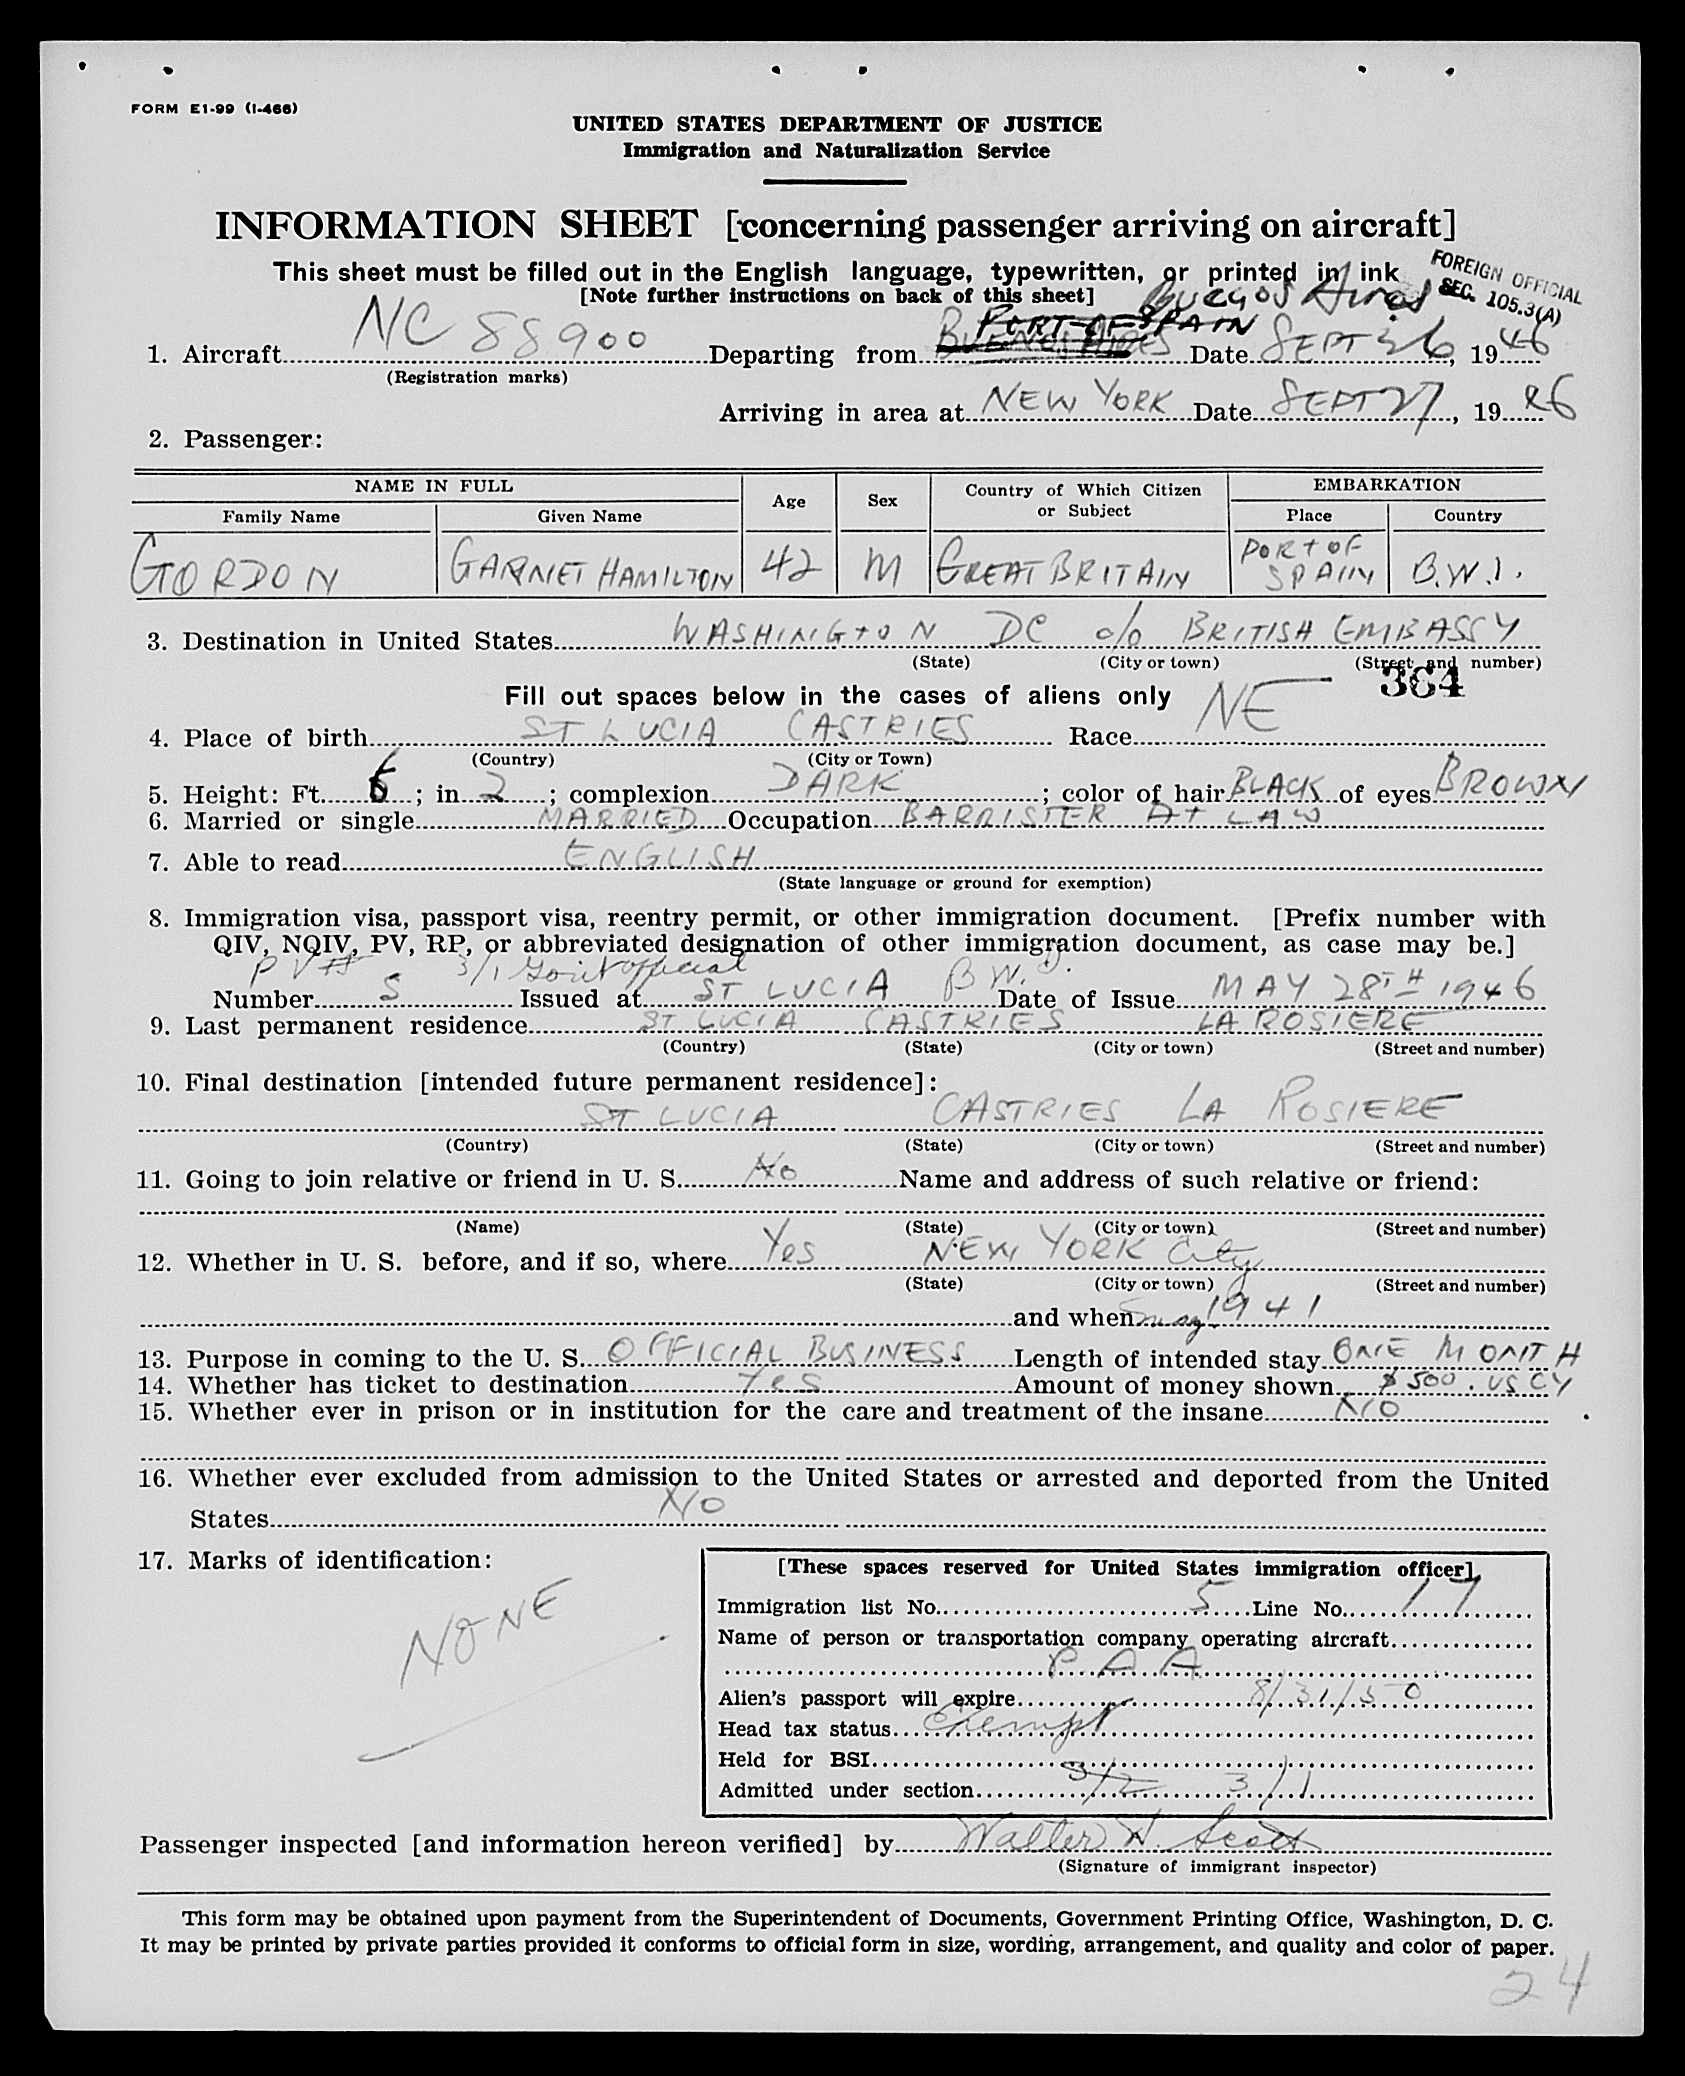 FORM E1-99 (I-466)
UNITED STATES DEPARTMENT OF JUSTICE
Immigration and Naturalization Service
INFORMATION SHEET [concerning passenger arriving on aircraft]
This sheet must be filled out in the English language, typewritten, or printed in ink
[Note further instructions on back of this sheet]
FOREIGN OFFICIAL
SEC. 105.3(A)
Buenos Aires
PORT OF SPAIN
1. Aircraft NC 88900 Departing from BUENOS AIRES Date SEPT 26, 1946
(Registration marks)
Arriving in area at NEW YORK Date SEPT 27, 19
2. Passenger:
NAME IN FULL Age Sex Country of Which Citizen or Subject EMBARKATION
Family Name Given Name Place Country
GORDON GARNET HAMILTON 42 M GREAT BRITAIN PORT OF SPAIN B.W.I.
3. Destination in United States WASHINGTON DC c/o BRITISH EMBASSY
(State) (City or town) (Street and number)
364
Fill out spaces below in the cases of aliens only
4. Place of birth ST LUCIA CASTRIES Race NE
(Country) (City or Town)
5. Height: Ft. 6; in. 2; complexion DARK; color of hair BLACK of eyes BROWN
6. Married or single MARRIED Occupation BARRISTER AT LAW
7. Able to read ENGLISH
(State language or ground for exemption)
8. Immigration visa, passport visa, reentry permit, or other immigration document. [Prefix number with
QIV, NQIV, PV, RP, or abbreviated designation of other immigration document, as case may be.]
PV # S 3/1 Gov't official
Number 5 Issued at ST LUCIA B.W.I. Date of Issue MAY 28TH 1946
9. Last permanent residence ST LUCIA CASTRIES LA ROSIERE
(Country) (State) (City or town) (Street and number)
10. Final destination [intended future permanent residence]:
ST LUCIA CASTRIES LA ROSIERE
(Country) (State) (City or town) (Street and number)
11. Going to join relative or friend in U. S. No Name and address of such relative or friend:
(Name) (State) (City or town) (Street and number)
12. Whether in U. S. before, and if so, where Yes NEW YORK City
(State) (City or town) (Street and number)
and when 1941
13. Purpose in coming to the U. S. OFFICIAL BUSINESS Length of intended stay ONE MONTH
14. Whether has ticket to destination Yes Amount of money shown $500. US CY
15. Whether ever in prison or in institution for the care and treatment of the insane NO
16. Whether ever excluded from admission to the United States or arrested and deported from the United
States NO
17. Marks of identification:
NONE
[These spaces reserved for United States immigration officer]
Immigration list No. 5 Line No. 17
Name of person or transportation company operating aircraft
P A A
Alien's passport will expire 8/31/50
Head tax status Exempt
Held for BSI
Admitted under section 3/2 3/1
Passenger inspected [and information hereon verified] by Walter H. Scott
(Signature of immigrant inspector)
This form may be obtained upon payment from the Superintendent of Documents, Government Printing Office, Washington, D. C.
It may be printed by private parties provided it conforms to official form in size, wording, arrangement, and quality and color of paper.
24